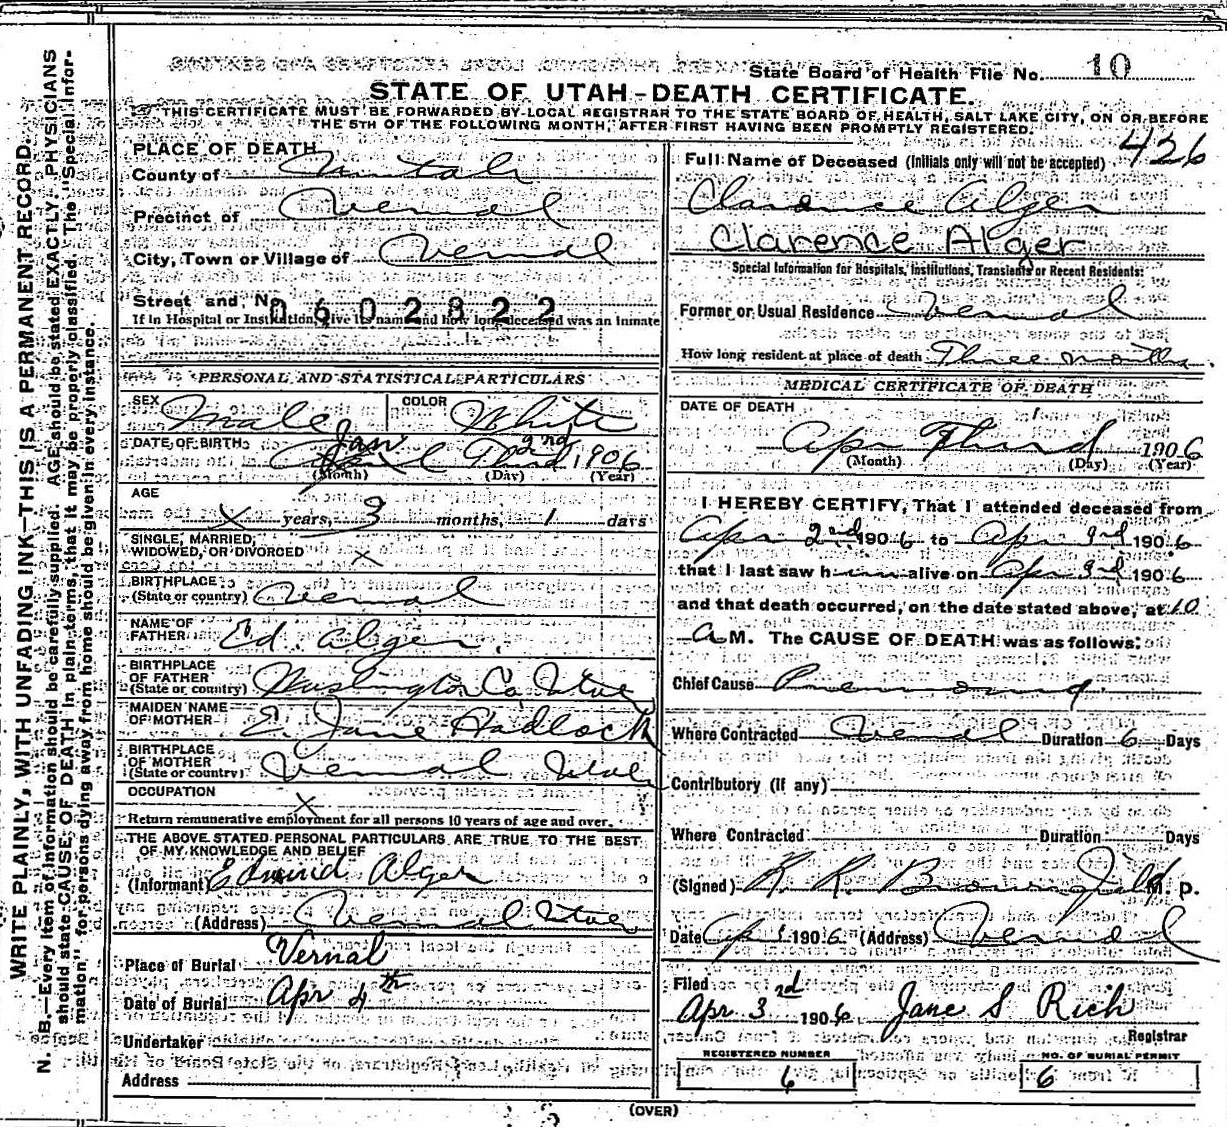 State Board of Health File No. 10
STATE OF UTAH-DEATH CERTIFICATE.
THIS CERTIFICATE MUST BE FORWARDED BY LOCAL REGISTRAR TO THE STATE BOARD OF HEALTH, SALT LAKE CITY, ON OR BEFORE
THE 5TH OF THE FOLLOWING MONTH, AFTER FIRST HAVING BEEN PROMPTLY REGISTERED.
WRITE PLAINLY, WITH UNFADING INK—THIS IS A PERMANENT RECORD.
N. B.—Every item of information should be carefully supplied. AGE should be stated EXACTLY. PHYSICIANS
should state CAUSE OF DEATH in plain terms, that it may be properly classified. The "Special Infor-
mation" for persons dying away from home should be given in every instance.
PLACE OF DEATH
County of Uintah
Precinct of Vernal
City, Town or Village of Vernal
Street and No.
0602822
If in Hospital or Institution, give its name and how long deceased was an inmate
PERSONAL AND STATISTICAL PARTICULARS
SEX Male COLOR White
DATE OF BIRTH Jan 2nd
April Third 1906
(Month) (Day) (Year)
AGE
X years, 3 months, 1 days
SINGLE, MARRIED,
WIDOWED, OR DIVORCED X
BIRTHPLACE
(State or country) Vernal
NAME OF
FATHER Ed. Alger.
BIRTHPLACE
OF FATHER
(State or country) Washington Co, Utah
MAIDEN NAME
OF MOTHER E. Jane Hadlock
BIRTHPLACE
OF MOTHER
(State or country) Vernal Utah
OCCUPATION X
Return remunerative employment for all persons 10 years of age and over.
THE ABOVE STATED PERSONAL PARTICULARS ARE TRUE TO THE BEST
OF MY KNOWLEDGE AND BELIEF
(Informant) Edmund Alger
(Address) Vernal Utah
Place of Burial Vernal
Date of Burial Apr 4th
Undertaker
Address
426
Full Name of Deceased (Initials only will not be accepted)
Clarence Alger
Clarence Alger
Special Information for Hospitals, Institutions, Transients or Recent Residents:
Former or Usual Residence Vernal
How long resident at place of death Three months
MEDICAL CERTIFICATE OF DEATH
DATE OF DEATH
Apr Third 1906
(Month) (Day) (Year)
I HEREBY CERTIFY, That I attended deceased from
Apr 2nd 1906 to Apr 3rd 1906
that I last saw him alive on Apr 3rd 1906
and that death occurred, on the date stated above, at 10
A M. The CAUSE OF DEATH was as follows:
Chief Cause
Where Contracted Vernal Duration 6 Days
Contributory (if any)
Where Contracted Duration Days
(Signed) R. R. Brownfield M. D.
Date Apr 1906 (Address) Vernal
Filed
Apr 3rd 1906 Jane S Rich
Registrar
REGISTERED NUMBER
6
NO. OF BURIAL PERMIT
6
(OVER)